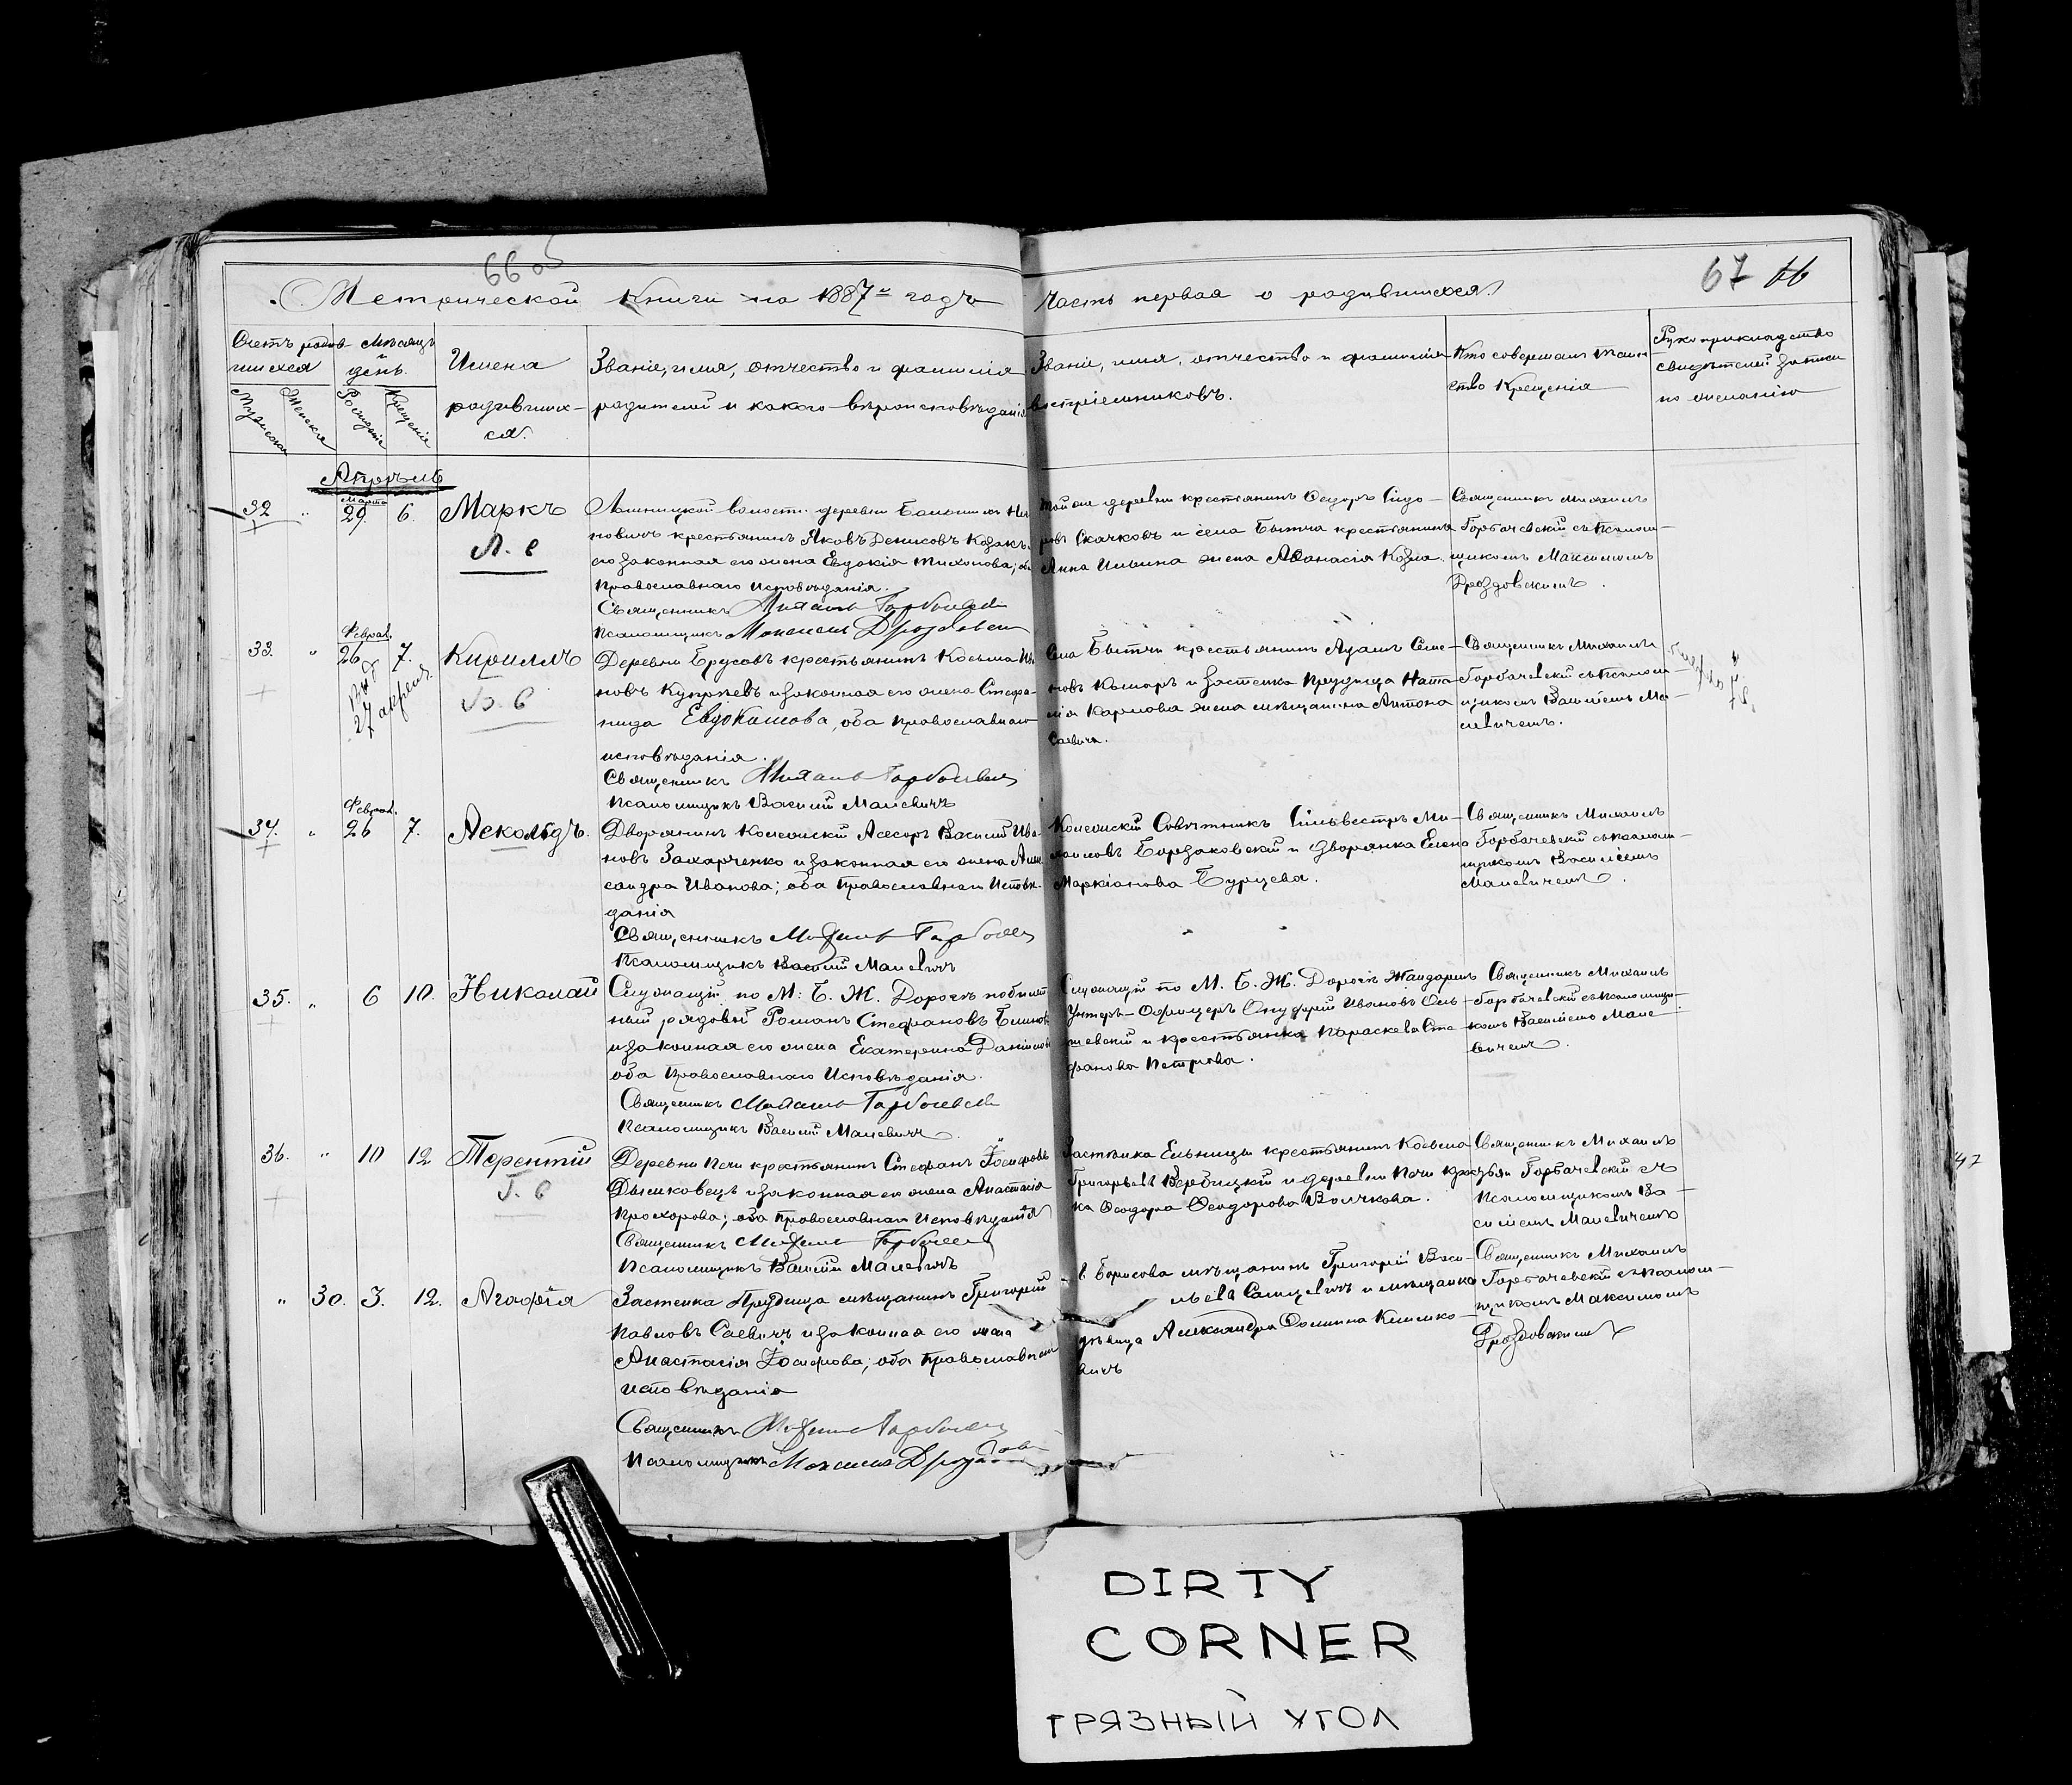 66 об
67 66
Метрической Книги на 1887й годъ
Часть первая о родившихся.
Счетъ родив-
шихся
Мужеска
Женска
Мѣсяцъ
и
день.
Рожденія
Крещенія
Имена
родивших-
ся.
Званіе, имя, отчество и фамилія
родителей и какого вѣроисповѣданія
Званіе, имя, отчество и фамилія
воспріемниковъ.
Кто совершалъ таин-
ство Крещенія
Рукоприкладство
свидѣтелей записи
по желанію
Апрѣль
32 " Марта 29. 6. Маркъ
Лошницкой волости деревни Большихъ
новичъ крестьянинъ Яковъ Денисовъ Козакъ
законная его жена Евдокія Тихонова;
Православнаго Исповѣданія.
Священникъ Михаилъ Горбачевскій
Псаломщикъ Максимъ Дроздовскій
той же деревни крестьянинъ Ѳедоръ Сидо-
ровъ Скачковъ и села Бытча крестьянина
Анна Ильина жена Аѳанасія Козла.
Священникъ Михаилъ
Горбачевскій съ Псалом-
щикомъ Максимомъ
Дроздовскимъ.
33. " Феврал. 26 7. Кириллъ
27 апрел.
Деревни Брусовъ крестьянинъ Косьма Ива-
новъ и законная его жена Стефа-
нида Евдокимова, оба православнаго
исповѣданія.
Священникъ Михаилъ Горбачевскій
Псаломщикъ Василій Малевичъ
Села Бытчи крестьянинъ Адамъ Семе-
новъ Комаръ и застенка Прудища Ната-
лія Карпова жена мѣщанина Антона
Саевича.
Священникъ Михаилъ
Горбачевскій съ Псалом-
щикомъ Василіемъ Ма-
левичемъ.
34. " Феврал. 26 7. Аскольдъ.
Дворянинъ Колежскій Асесоръ Василій Ива-
новъ Захарченко и законная его жена Алек-
сандра Иванова; оба Православнаго Исповѣ-
данія
Священникъ Михаилъ Горбачевскій
Псаломщикъ Василій Малевичъ
Колежскій Совѣтникъ Сильвестръ Ми-
хаиловъ Борзаковскій и Дворянка Елена
Маркіанова Бурцева.
Священникъ Михаилъ
Горбачевскій съ псалом-
щикомъ Василіемъ
Малевичемъ.
35. " 6 10. Николай
Служащій по М. Б. Ж. Дорогѣ
рядовый Романъ Стефановъ
и законная его жена Екатерина Даніилова
оба Православнаго Исповѣданія.
Священникъ Михаилъ Горбачевскій
Псаломщикъ Василій Малевичъ
Служащій по М. Б. Ж. Дорогѣ Жандармъ
Унтеръ-Офицеръ Онуфрій Ивановъ Оль-
шевскій и крестьянка Параскева Сте-
фанова Петрова.
Священникъ Михаилъ
Горбачевскій съ псаломщи-
комъ Василіемъ Мале-
вичемъ.
36. " 10 12 Терентій
Деревни Печи крестьянинъ Стефанъ Іосифовъ
Дышковецъ и законная его жена Анастасія
Прохорова; оба Православнаго Исповѣданія
Священникъ Михаилъ Горбачевскій
Псаломщикъ Василій Малевичъ
Застѣнка Ельницы крестьянинъ Косьма
Григорьевъ Вербицкій и деревни Печи крестьян-
ка Ѳеодора Ѳеодорова Волчкова.
Священникъ Михаилъ
Горбачевскій съ
Псаломщикомъ Ва-
силіемъ Малевичемъ
" 30. 3. 12. Агафія
Застенка Прудища мѣщанинъ Григорій
Павловъ Саевичъ и законная его жена
Анастасія Іосифова; оба Православнаго
исповѣданія
Священникъ Михаилъ Горбачевскій
Псаломщикъ Максимъ Дроздовскій
г. Борисова мѣщанинъ Григорій Васи-
льевъ и мѣщанка
дѣвица Александра Ѳомина Климко-
вичъ
Священникъ Михаилъ
Горбачевскій съ псалом-
щикомъ Максимомъ
Дроздовскимъ
47
DIRTY
CORNER
ГРЯЗНЫЙ УГОЛ